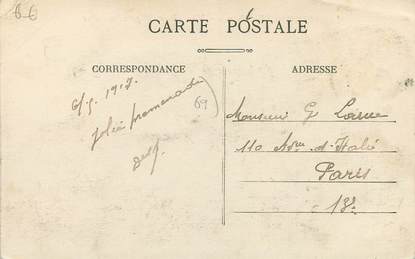 66
CARTE POSTALE
CORRESPONDANCE
ADRESSE
jolie promenade
69
Monsieur G
110 Aven. d'Italie
Paris
13e